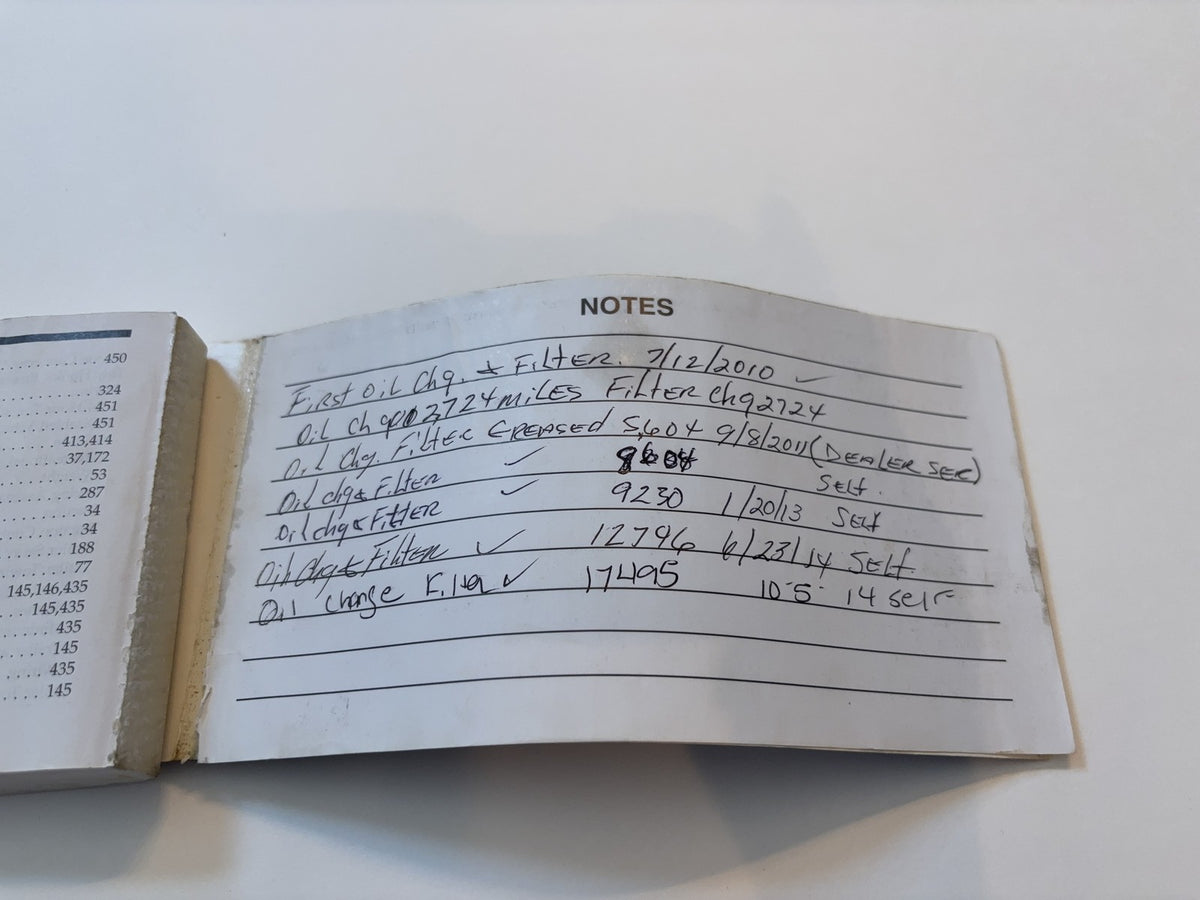 450
324
451
451
413,414
37,172
53
287
34
34
188
77
145,146,435
145,435
435
145
435
145
NOTES
First Oil Chg. & Filter. 7/12/2010 ✓
Oil Chg 2,724 miles Filter Chg 2724
Oil Chg. Filter Greased 5,604 9/8/2011 (Dealer Ser)
Oil chg & Filter ✓ Self.
Oil chg & Filter ✓ 9230 1/20/13 Self
Oil Chg & Filter ✓ 12796 6/23/14 Self
Oil Change Filter ✓ 17495 10-5-14 self